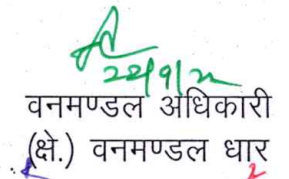 22/9/22
वनमण्डल अधिकारी
(क्षे.) वनमण्डल धार